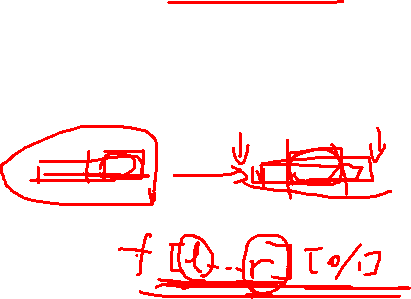 f [l..r] [0/1]